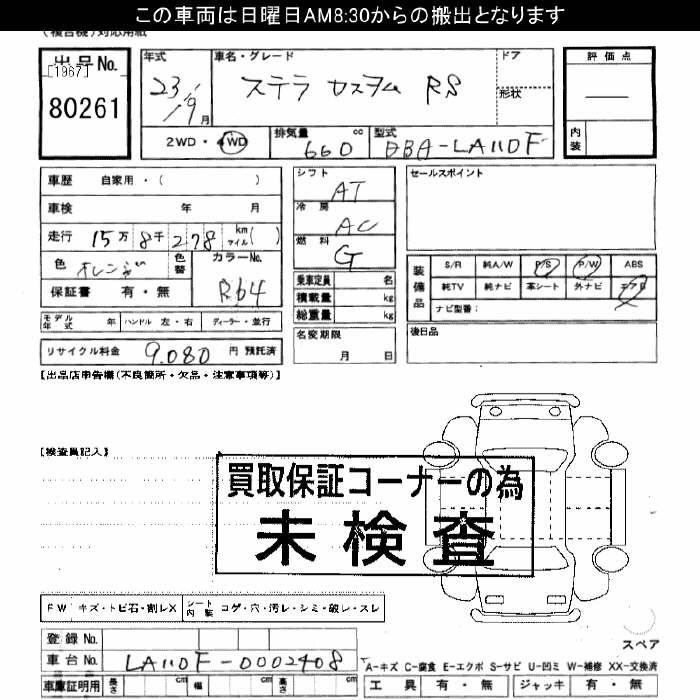 この車両は日曜日AM8:30からの搬出となります
(複合機)対応用紙
出品No.
[1967]
80261
年式
23/9月
車名・グレード
ステラ カスタム RS
ドア
形状
評価点
内装
2WD・4WD
排気量 660 cc
型式 DBA-LA110F
車歴 自家用・( )
車検 年 月
走行 15万8千278 km マイル( )
色 オレンジ
色替
カラーNo. R64
保証書 有・無
モデル年式 年 ハンドル 左・右 ディーラー・並行
リサイクル料金 9,080 円 預託済
シフト AT
冷房 AC
燃料 G
乗車定員 名
積載量 kg
総重量 kg
名変期限
月 日
セールスポイント
装備品
S/R 純A/W P/S P/W ABS
純TV 純ナビ 革シート 外ナビ エアB
ナビ型番:
後日品
【出品店申告欄(不良箇所・欠品・注意事項等)】
【検査員記入】
買取保証コーナーの為
未検査
FW キズ・トビ石・割レX
シート内装 コゲ・穴・汚レ・シミ・破レ・スレ
登録No.
車台No. LA110F-0002408
車庫証明用 長さ cm 幅 cm 高さ cm
スペア
A-キズ C-腐食 E-エクボ S-サビ U-凹ミ W-補修 XX-交換済
工具 有・無 ジャッキ 有・無